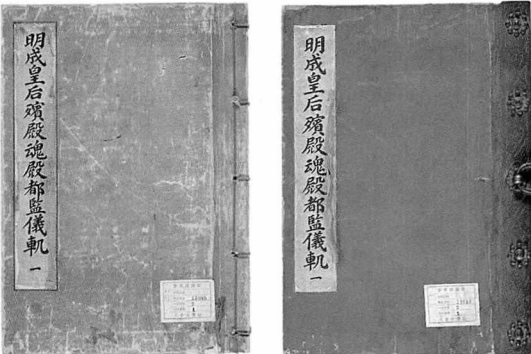 明成皇后殯殿魂殿都監儀軌 一
明成皇后殯殿魂殿都監儀軌 一